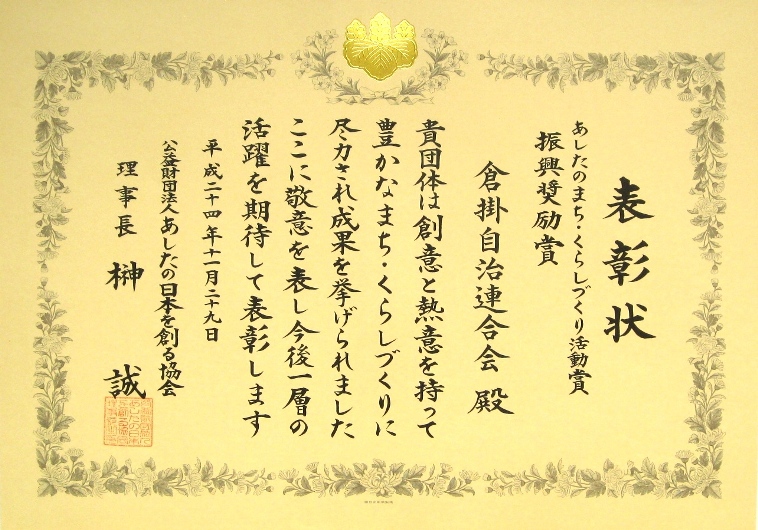 表彰状
あしたのまち・くらしづくり活動賞
振興奨励賞
倉掛自治連合会 殿
貴団体は創意と熱意を持って
豊かなまち・くらしづくりに
尽力され成果を挙げられました
ここに敬意を表し今後一層の
活躍を期待して表彰します
平成二十四年十一月二十九日
公益財団法人あしたの日本を創る協会
理事長 榊 誠